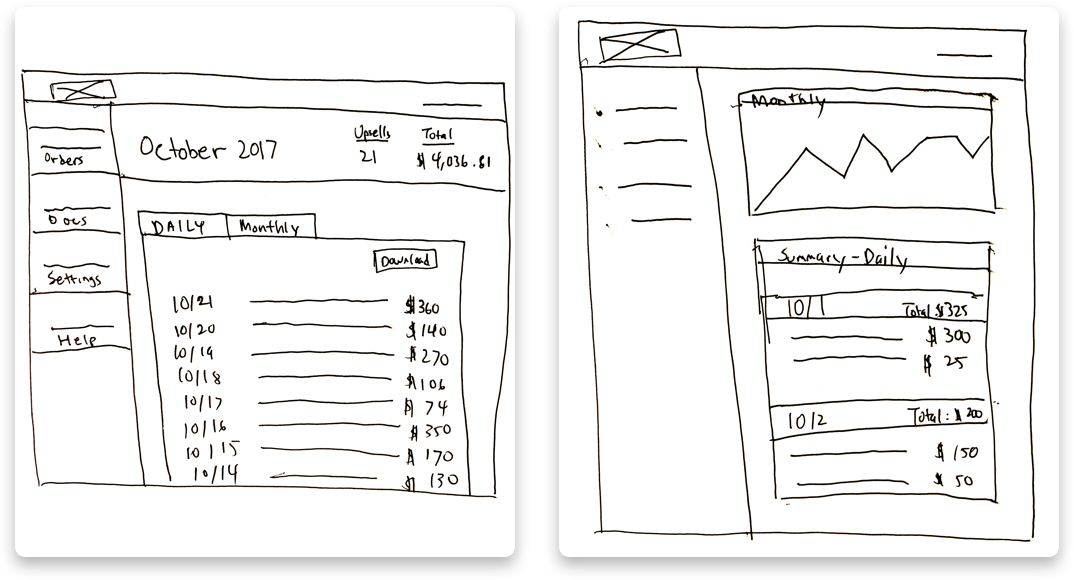 Orders
Docs
Settings
Help
October 2017
Upsells
21
Total
$4,036.81
DAILY
Monthly
Download
10/21 $360
10/20 $140
10/19 $270
10/18 $106
10/17 $74
10/16 $350
10/15 $170
10/14 $130
Monthly
Summary - Daily
10/1 Total $325
$300
$25
10/2 Total: $200
$150
$50